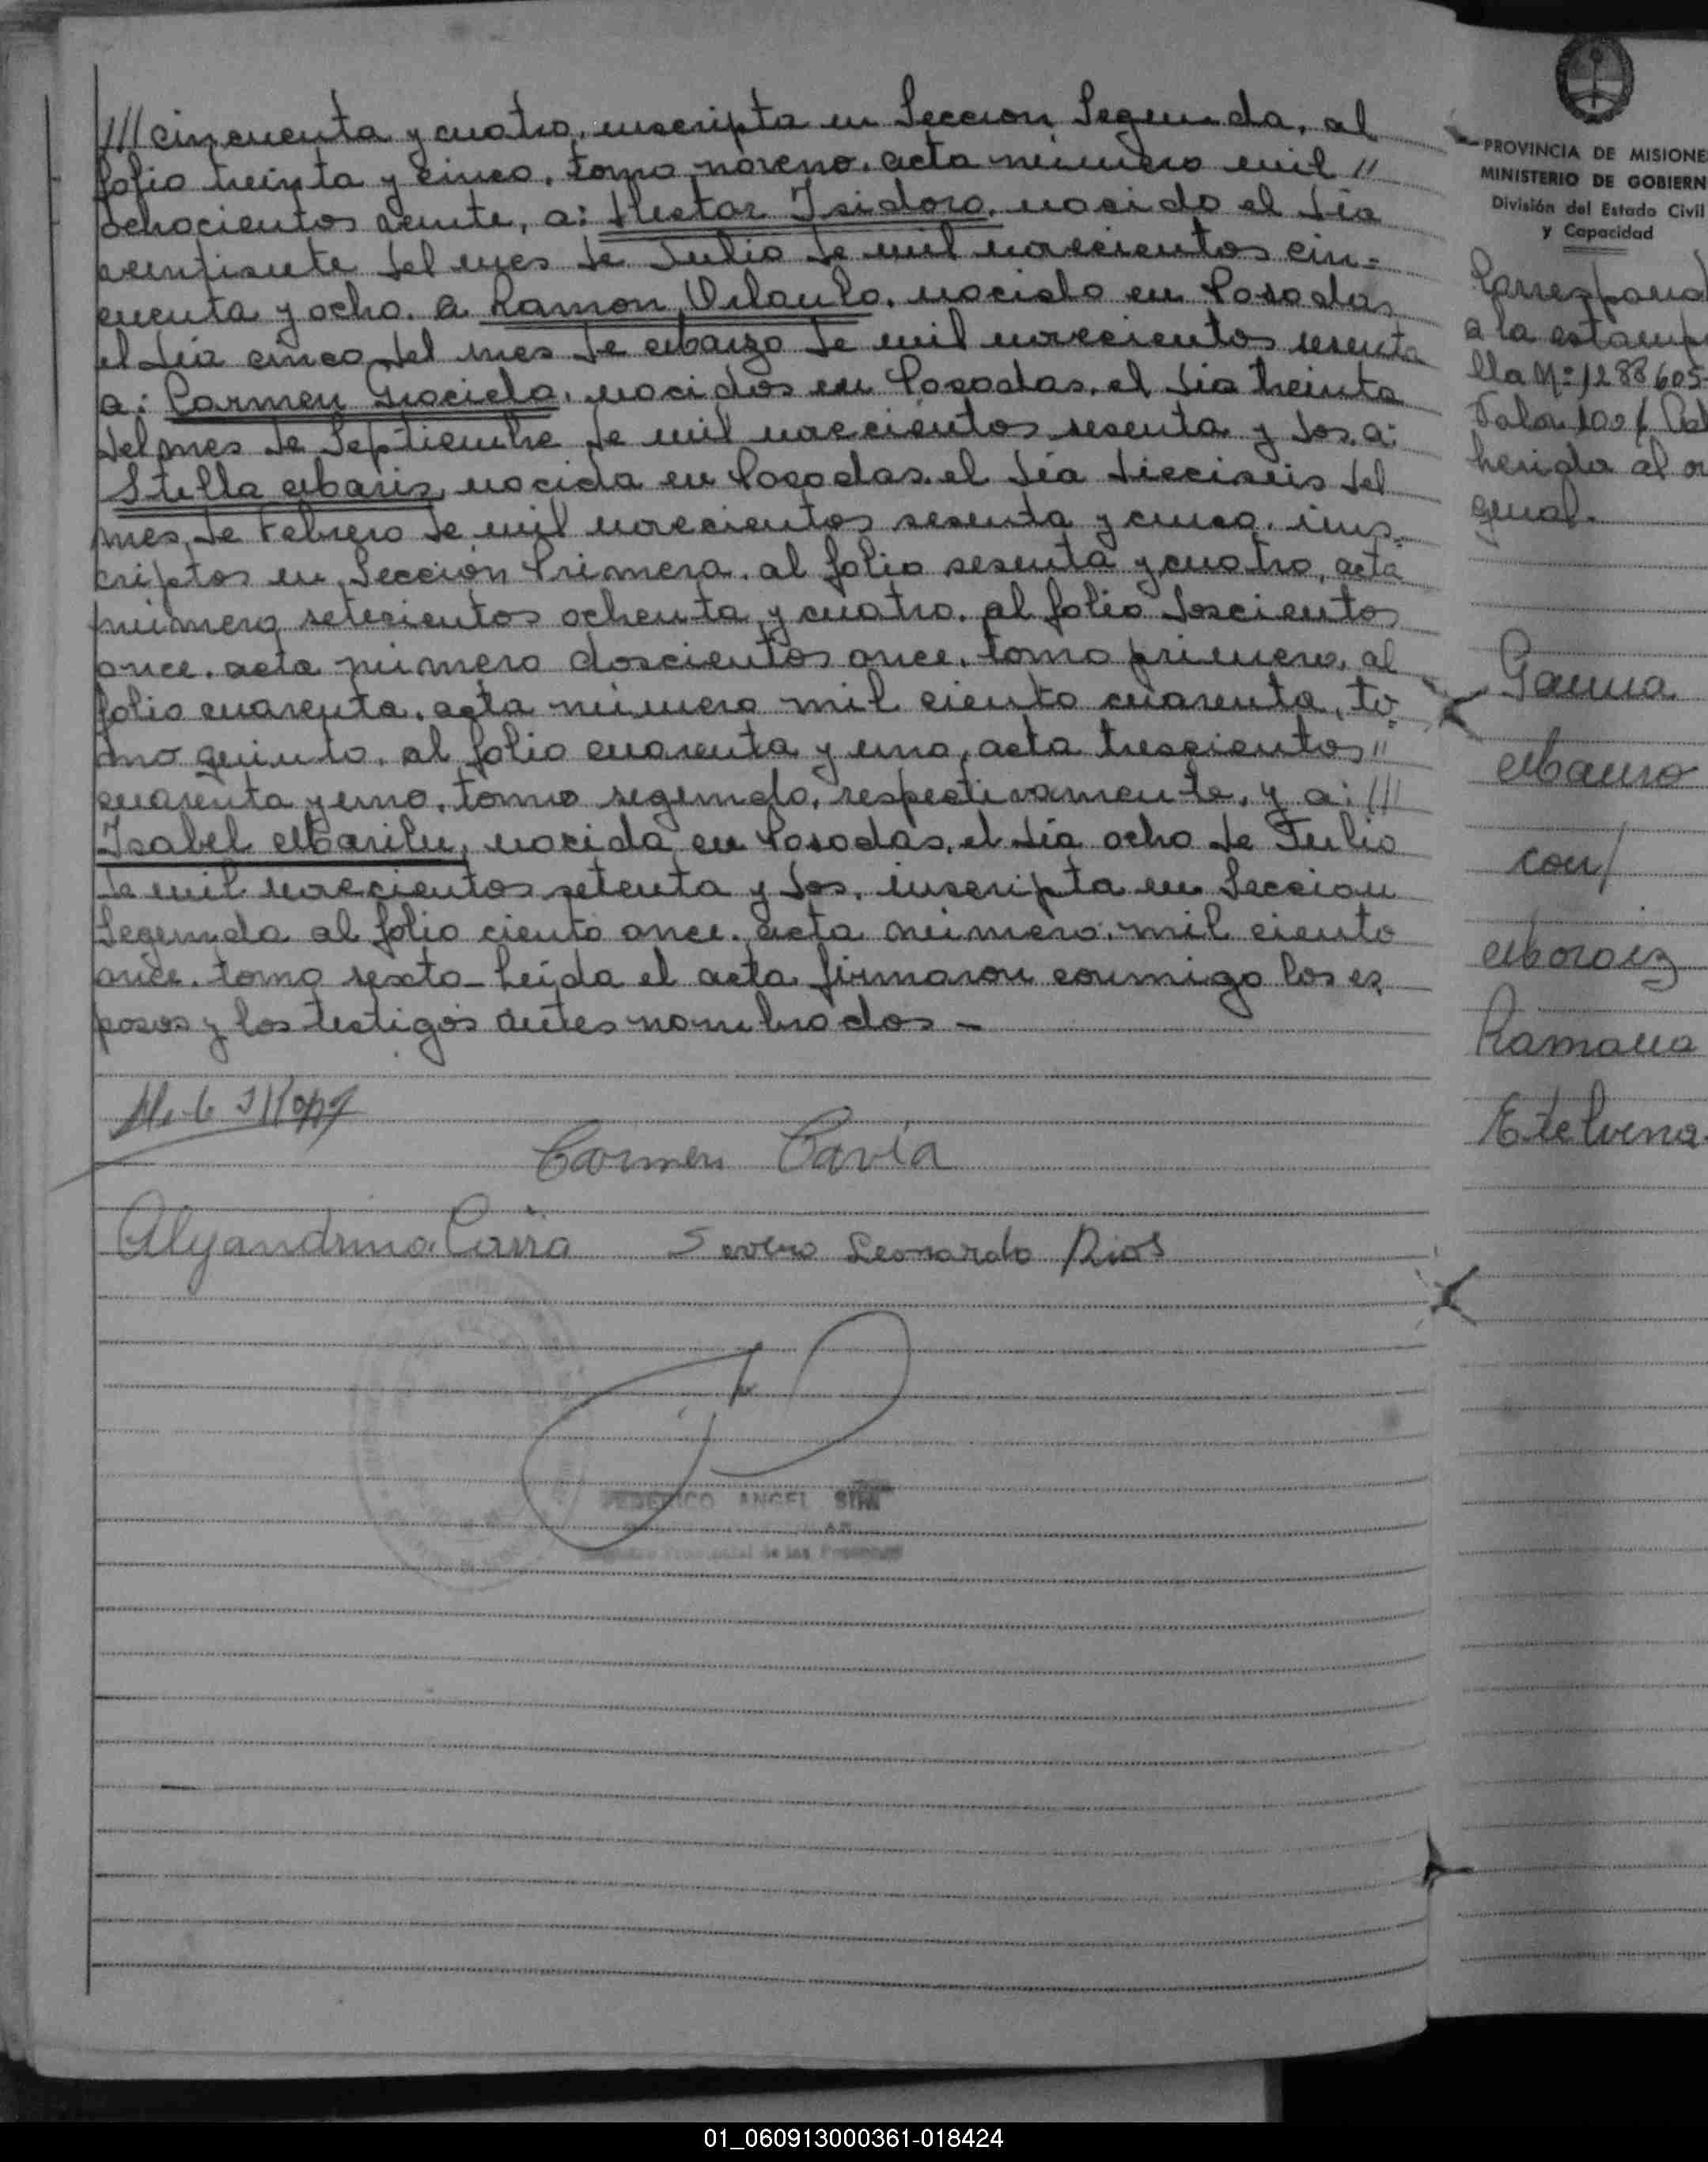 ///cincuenta y cuatro, inscripta en Seccion Segunda, al
folio treinta y cinco, tomo noveno, acta número mil //
ochocientos veinte, a: Hector Isidoro, nacido el día
veintisiete del mes de Julio de mil novecientos cin=
cuenta y ocho. a Ramon Orlando, nacido en Posadas
el día cinco del mes de Marzo de mil novecientos sesenta
a: Carmen Graciela, nacidos en Posadas, el día treinta
del mes de Septiembre de mil novecientos sesenta y dos, a:
Stella Maris, nacida en Posadas, el día dieciseis del
mes de Febrero de mil novecientos sesenta y cinco, ins
criptos en Sección Primera, al folio sesenta y cuatro, acta
número setecientos ochenta y cuatro, al folio doscientos
once, acta número doscientos once, tomo primero, al
folio cuarenta, acta número mil ciento cuarenta, to
mo quinto, al folio cuarenta y uno, acta trescientos //
cuarenta y uno, tomo segundo, respectivamente, y a: ///
Isabel Marilu, nacida en Posadas, el día ocho de Julio
de mil novecientos setenta y dos, inscripta en Seccion
Segunda al folio ciento once, acta número mil ciento
once, tomo sexto_ Leída el acta firmaron conmigo los es
posos y los testigos antes nombrados -
Carmen Cavia
Alejandrina Severo Leonardo Rios
FEDERICO ANGEL
Provincial de las Personas
PROVINCIA DE MISIONE
MINISTERIO DE GOBIERN
División del Estado Civil
y Capacidad
Correspond
a la estampi
lla Nº 1288605-
Valor 100 Ad
herida al or
ginal.
Gauna
Mauro
con/
Moraez
Ramona
Etelvina
01_060913000361-018424